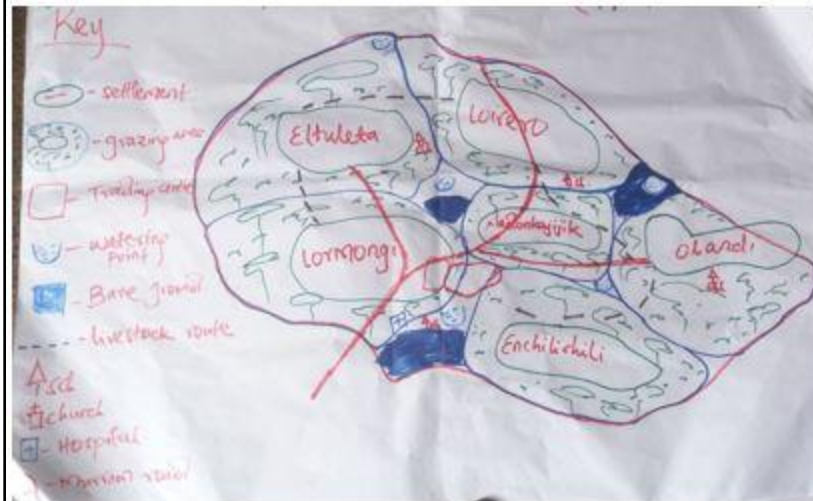 Key
- settlement
- grazing area
- Trading centre
- watering point
- Bare ground
- livestock route
sch
church
- Hospital
Eltuleta
Lorero
Lormongi
Olandi
Enchilishili